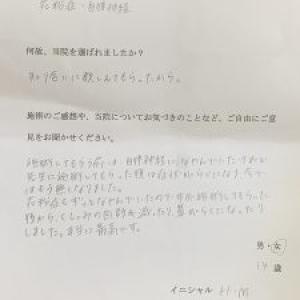 花粉症・自律神経
何故、当院を選ばれましたか？
知り合いに教えてもらったから。
施術のご感想や、当院についてお気づきのことなど、ご自由にご意
見をお聞かせください。
施術してもらう前は、自律神経になやんでいたけれど
先生に施術してもらった後は症状がらくになり、今で
はもう無くなりました。
花粉症もずっとなやんでいたのですが施術してもらった
後から、くしゃみの回数が減ったり、鼻がらくになったり
しました。本当に最高です。
男・女
14 歳
イニシャル H・M